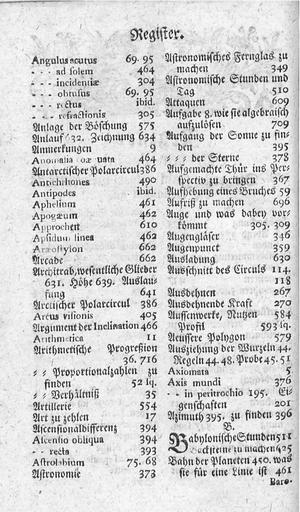 Register.
Angulus acutus 69. 95
- - - ad solem 464
- - - incidentiæ 304
- - - obtusus 69. 95
- - - rectus ibid.
- - - refractionis 305
Anlage der Böschung 575
Anlauf 632. Zeichnung 634
Anmerkungen 9
Anomalia 464
Antarctischer Polarcircul 386
Antichthones 490
Antipodes ibid.
Aphelium 461
Apogæum 462
Approchen 610
Apsidum linea 462
Aræostylon 662
Arcade 662
Architrab, wesentliche Glieder
631. Höhe 639. Auslauf-
fung 641
Arctischer Polarcircul 386
Arcus visionis 405
Argument der Inclination 466
Arithmetica 11
Arithmetische Progreßion
36. 716
⸗ ⸗ Proportionalzahlen zu
finden 52 sq.
⸗ ⸗ Verhältniß 35
Artillerie 554
Art zu zehlen 17
Ascensionaldifferenz 394
Ascensio obliqua 394
- - recta 393
Astrolabium 75. 68
Astronomie 373
Astronomisches Fernglas zu
machen 349
Astronomische Stunden und
Tag 510
Attaquen 609
Aufgabe 8. wie sie algebraisch
aufzulösen 709
Aufgang der Sonne zu fin-
den 395
⸗ ⸗ ⸗ der Sterne 378
Aufgemachte Thür ins Per-
spectiv zu bringen 367
Aufhebung eines Bruches 59
Aufriß zu machen 696
Auge und was dabey vor-
kömmt 305. 309
Augengläser 346
Augenpunct 359
Ausladung 630
Ausschnitt des Circuls 114.
118
Ausdehnen 267
Ausdehnende Kraft 270
Aussenwerke, Nutzen 584
Profil 593 sq.
Aeussere Polygon 579
Ausziehung der Wurzeln 44.
Regeln 44. 48. Probe 45. 51
Axiomata 5
Axis mundi 376
- - in peritrochio 195. Ei-
genschaften 201
Azimuth 395. zu finden 396
B.
Babylonische Stunden 511
Backsteine zu machen 625
Bahn der Planeten 450. was
sie für eine Linie ist 461
Baro-